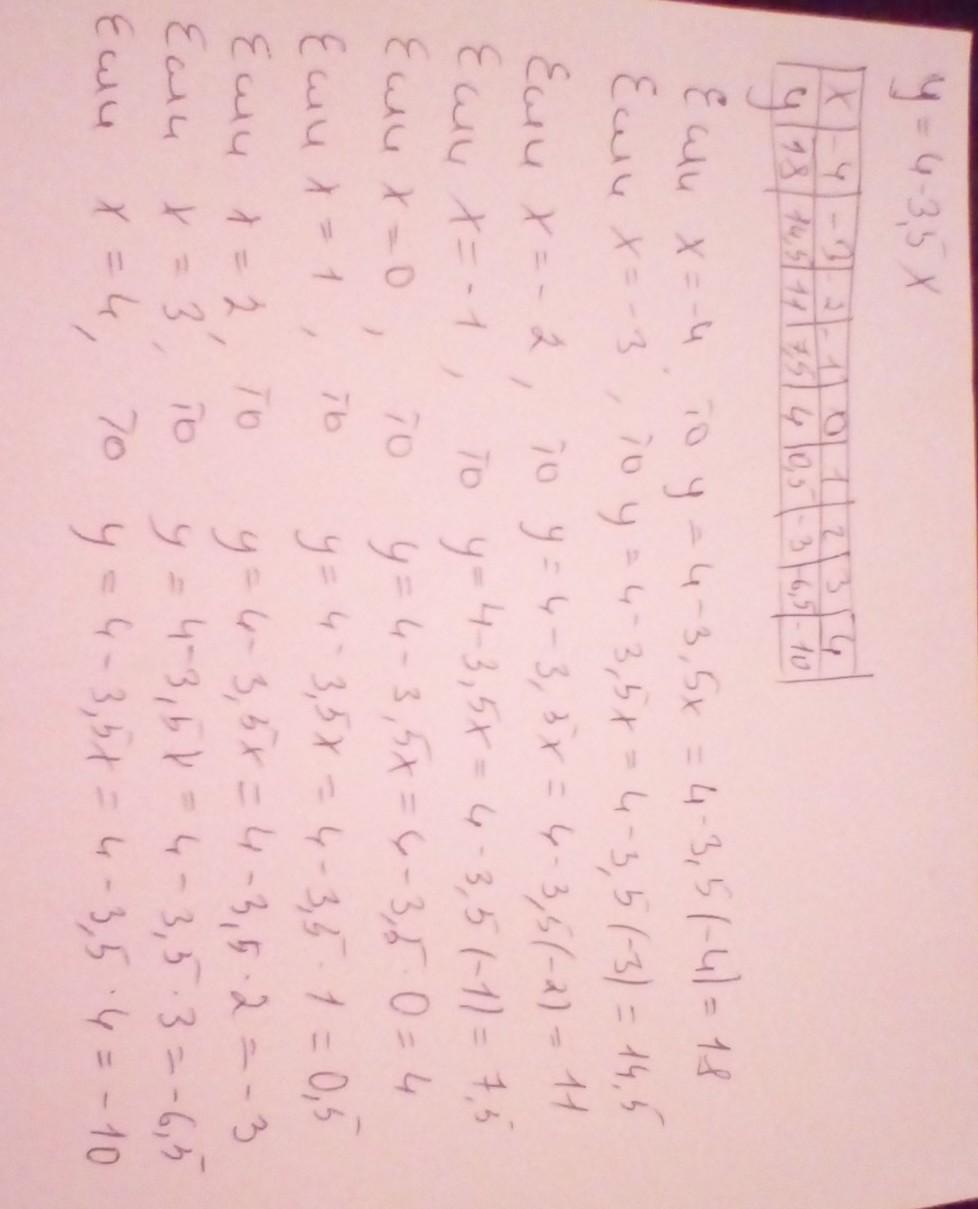 y = 4-3,5x
x -4 -3 -2 -1 0 1 2 3 4
y 18 14,5 11 7,5 4 0,5 -3 6,5 -10
Если x = -4, то y = 4-3,5x = 4-3,5(-4) = 18
Если x = -3, то y = 4-3,5x = 4-3,5(-3) = 14,5
Если x = -2, то y = 4-3,5x = 4-3,5(-2) = 11
Если x = -1, то y = 4-3,5x = 4-3,5(-1) = 7,5
Если x = 0, то y = 4-3,5x = 4-3,5·0 = 4
Если x = 1, то y = 4-3,5x = 4-3,5·1 = 0,5
Если x = 2, то y = 4-3,5x = 4-3,5·2 = -3
Если x = 3, то y = 4-3,5x = 4-3,5·3 = -6,5
Если x = 4, то y = 4-3,5x = 4-3,5·4 = -10